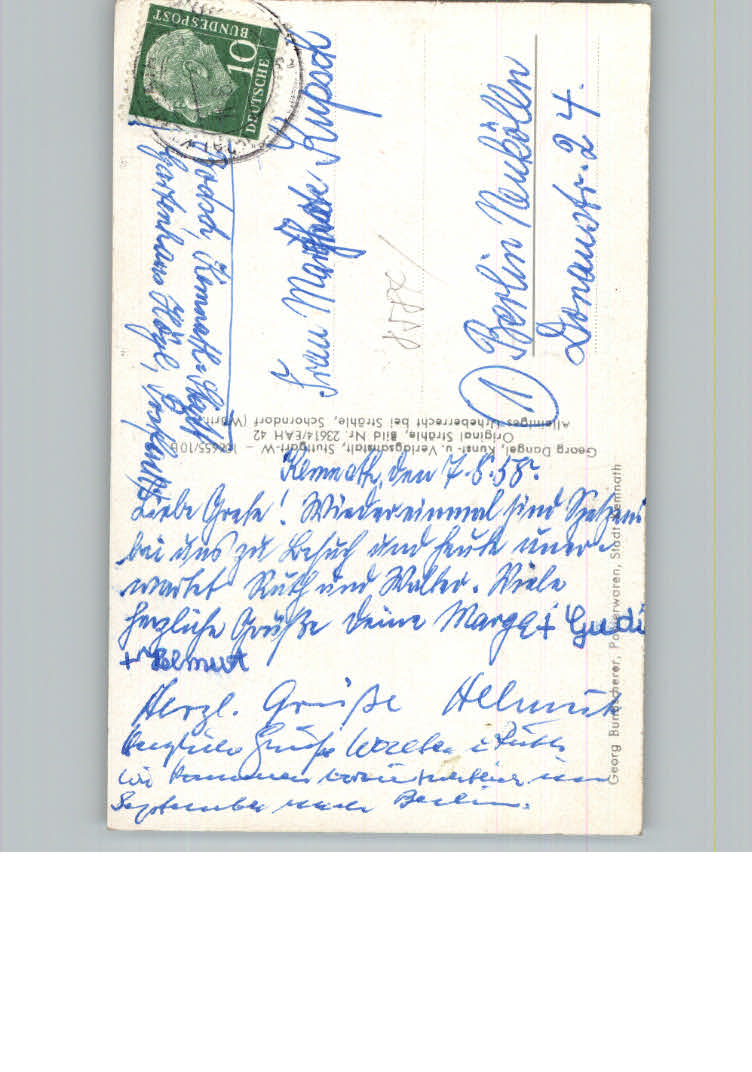 DEUTSCHE
BUNDESPOST
10
Kemnath-Stadt
Gartenhaus
Frau Kupsch
(1) Berlin Neukölln
Donaustr. 24.
Georg Dangel, Kunst- u. Verlagsanstalt, Stuttgart-W
Original Strähle, Bild Nr. 23614/EAH 42
Alleiniges Urheberrecht bei Strähle, Schorndorf (Württ.)
Georg Burgscherer, Papierwaren, Stadt Kemnath
Kemnath, den 7.8.58.
Liebe Grete! Wieder einmal sind
bei uns zu Besuch und heute uner-
wartet Ruth und Walter. Viele
herzliche Grüße Deine Marga + Gudi
+ Helmut
Herzl. Grüße Helmut
Herzliche Grüße Walter u. Ruth
wir kommen voraussichtlich im
September nach Berlin.